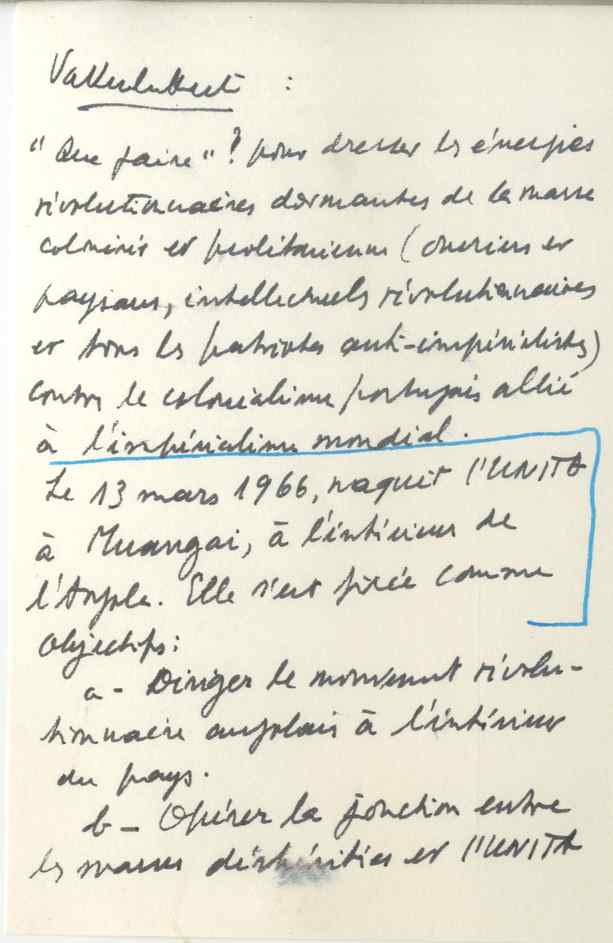 :
"Que faire"? pour dresser les énergies
révolutionnaires dormantes de la masse
et prolétarienne (ouvriers et
paysans, intellectuels révolutionnaires
et tous les patriotes anti-impérialistes)
contre le colonialisme portugais allié
à l'impérialisme mondial.
Le 13 mars 1966, naquit l'UNITA
à Muangai, à l'intérieur de
l'Angola. Elle s'est fixée comme
objectifs:
a - Diriger le mouvement révolu-
tionnaire angolais à l'intérieur
du pays.
b - Opérer la jonction entre
les masses déshéritées et l'UNITA